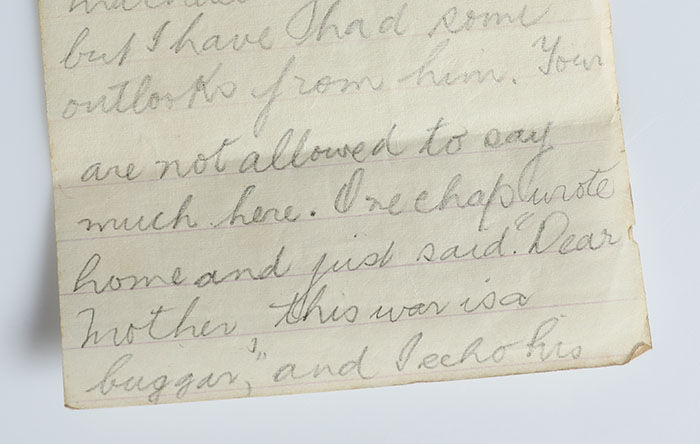 but I have had some
outlooks from him. Your
are not allowed to say
much here. One chap wrote
home and just said. "Dear
Mother this war is a
buggar," and I echo his